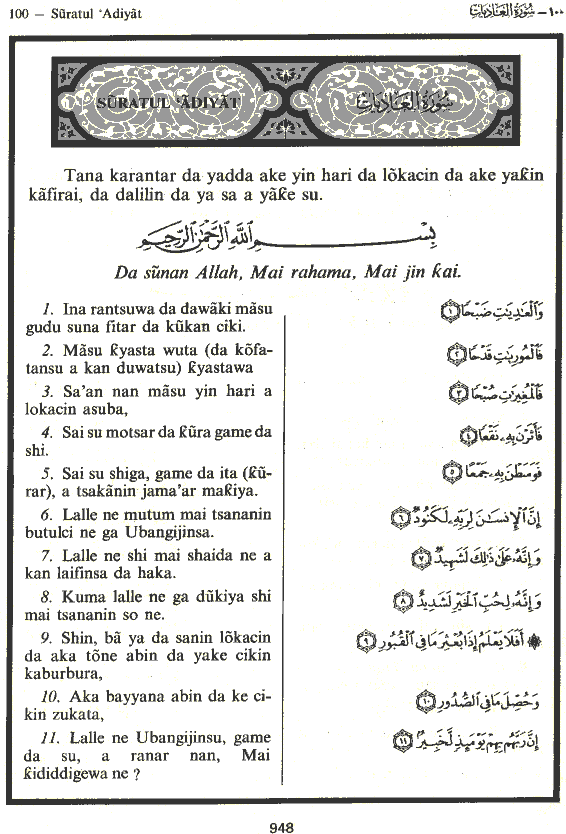 100 — Sũratul ‘Adiyât
١٠٠ – سُورَةُ الْعَادِيَاتِ
SŨRATUL ‘ÃDIYÃT
سُورَةُ الْعَادِيَاتِ
Tana karantar da yadda ake yin hari da lõkacin da ake yaƙin
kãfirai, da dalilin da ya sa a yãƙe su.
بِسْمِ اللَّهِ الرَّحْمَٰنِ الرَّحِيمِ
Da sũnan Allah, Mai rahama, Mai jin ƙai.
1. Ina rantsuwa da dawãki mãsu
gudu suna fitar da kũkan ciki.
2. Mãsu ƙyasta wuta (da kõfa-
tansu a kan duwatsu) ƙyastawa
3. Sa'an nan mãsu yin hari a
lokacin asuba,
4. Sai su motsar da ƙũra game da
shi.
5. Sai su shiga, game da ita (ƙũ-
rar), a tsakãnin jama'ar maƙiya.
6. Lalle ne mutum mai tsananin
butulci ne ga Ubangijinsa.
7. Lalle ne shi mai shaida ne a
kan laifinsa da haka.
8. Kuma lalle ne ga dũkiya shi
mai tsananin so ne.
9. Shin, bã ya da sanin lõkacin
da aka tõne abin da yake cikin
kaburbura,
10. Aka bayyana abin da ke ci-
kin zukata,
11. Lalle ne Ubangijinsu, game
da su, a ranar nan, Mai
ƙididdigewa ne ?
وَالْعَادِيَاتِ ضَبْحًا ١
فَالْمُورِيَاتِ قَدْحًا ٢
فَالْمُغِيرَاتِ صُبْحًا ٣
فَأَثَرْنَ بِهِ نَقْعًا ٤
فَوَسَطْنَ بِهِ جَمْعًا ٥
إِنَّ الْإِنسَانَ لِرَبِّهِ لَكَنُودٌ ٦
وَإِنَّهُ عَلَىٰ ذَٰلِكَ لَشَهِيدٌ ٧
وَإِنَّهُ لِحُبِّ الْخَيْرِ لَشَدِيدٌ ٨
۞ أَفَلَا يَعْلَمُ إِذَا بُعْثِرَ مَا فِي الْقُبُورِ ٩
وَحُصِّلَ مَا فِي الصُّدُورِ ١٠
إِنَّ رَبَّهُم بِهِمْ يَوْمَئِذٍ لَّخَبِيرٌ ١١
948